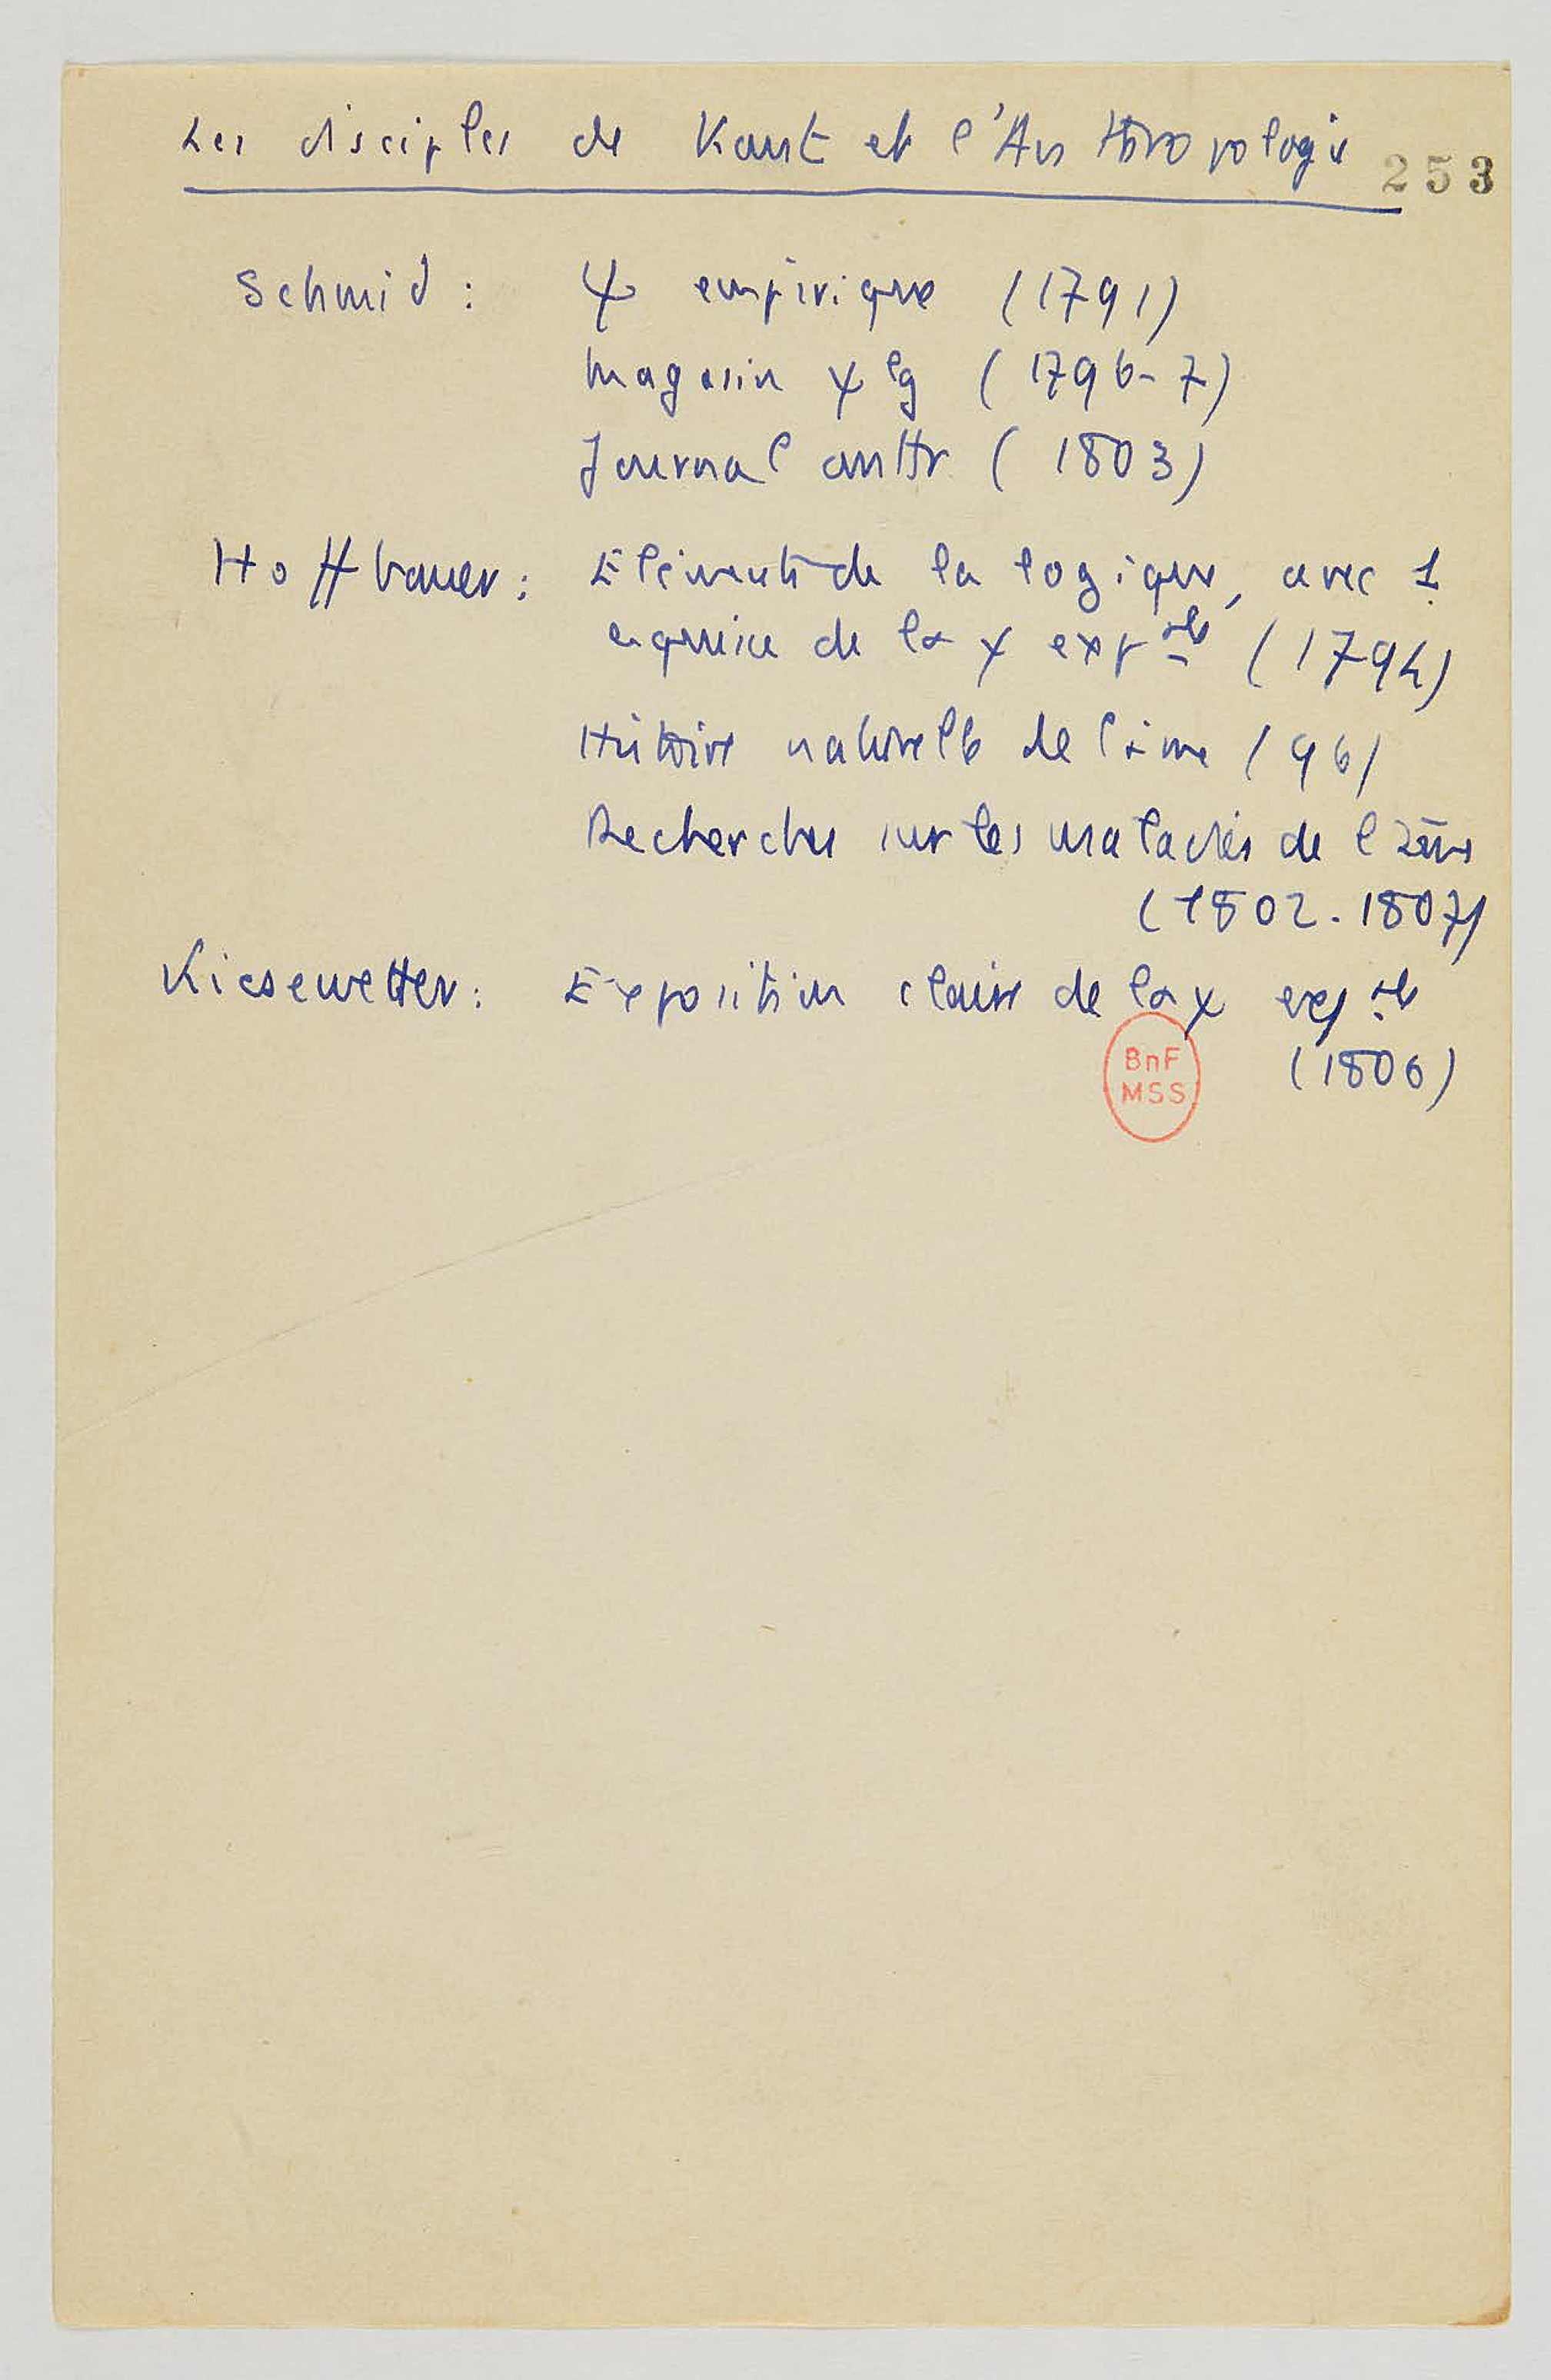 Les disciples de Kant et l'Anthropologie
253
Schmid : ψ empirique (1791)
Magasin ψ lg (1796-7)
Journal anthr. (1803)
Hoffbauer : Eléments de la logique, avec 1
esquisse de la ψ exp ale (1794)
Histoire naturelle de l'âme (96)
Recherches sur les maladies de l'âme
(1802-1807)
Kiesewetter : Exposition claire de la ψ exp ale
(1806)
BnF
MSS